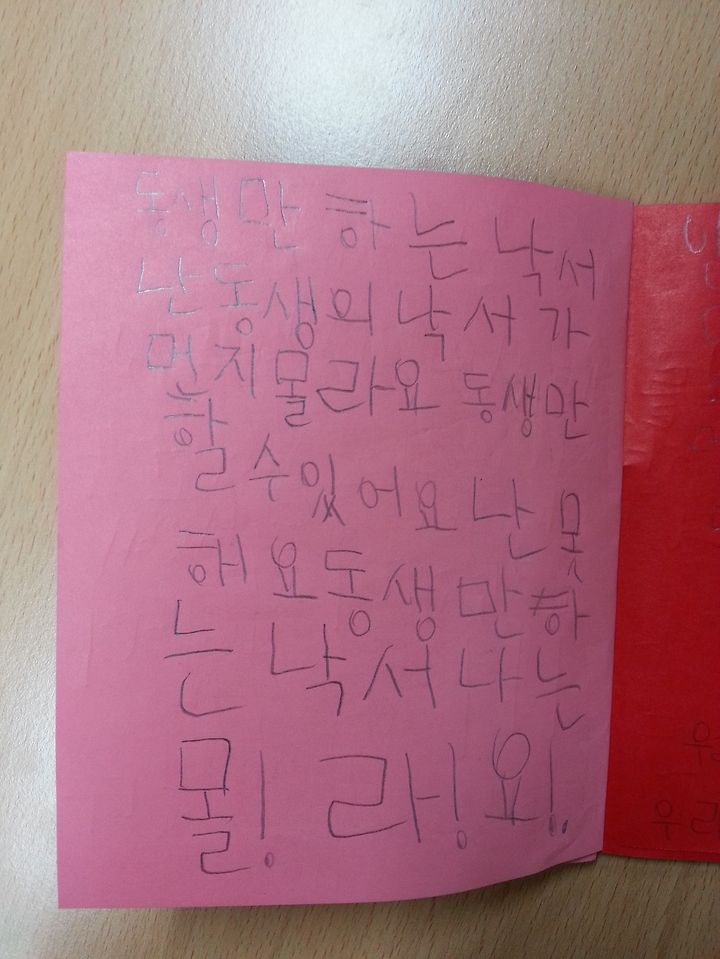 동생만 하는 낙서
난 동생의 낙서가
먼지 몰라요 동생만
할 수 있어요 난 못
해요 동생만 하
는 낙서 나는
몰! 라! 요!